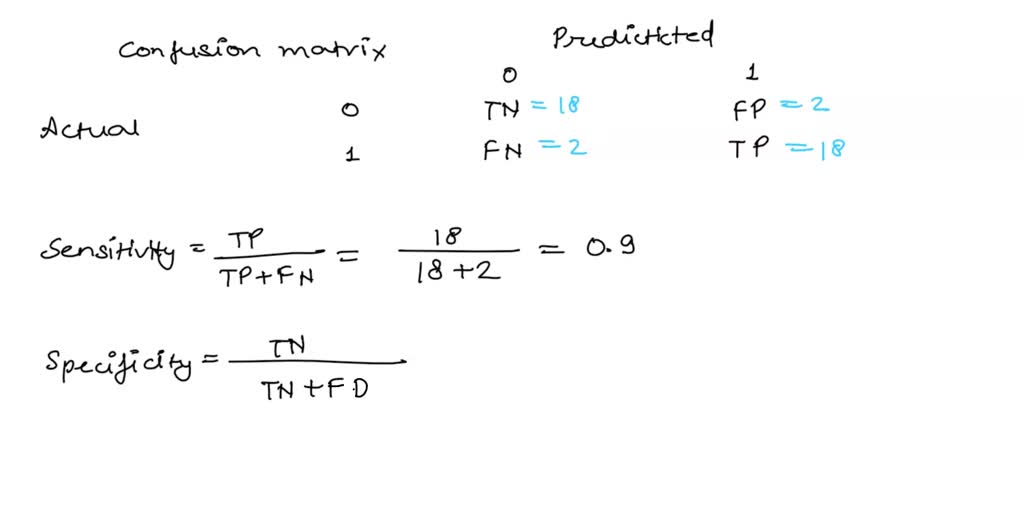 Confusion matrix Predicticted
0 1
Actual 0 TN = 18 FP = 2
1 FN = 2 TP = 18
Sensitivity = TP / TP+FN = 18 / 18+2 = 0.9
Specificity = TN / TN+FD